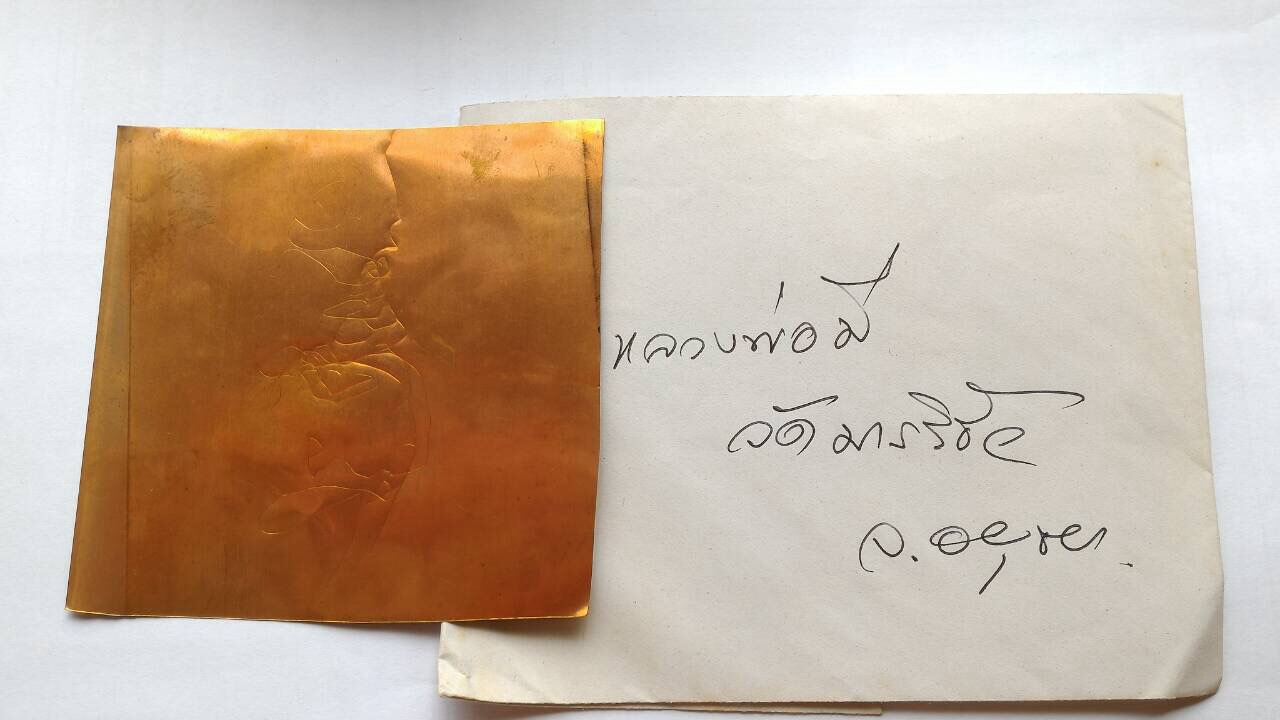 หลวงพ่อมี
วัดมารวิชัย
จ.อยุธยา